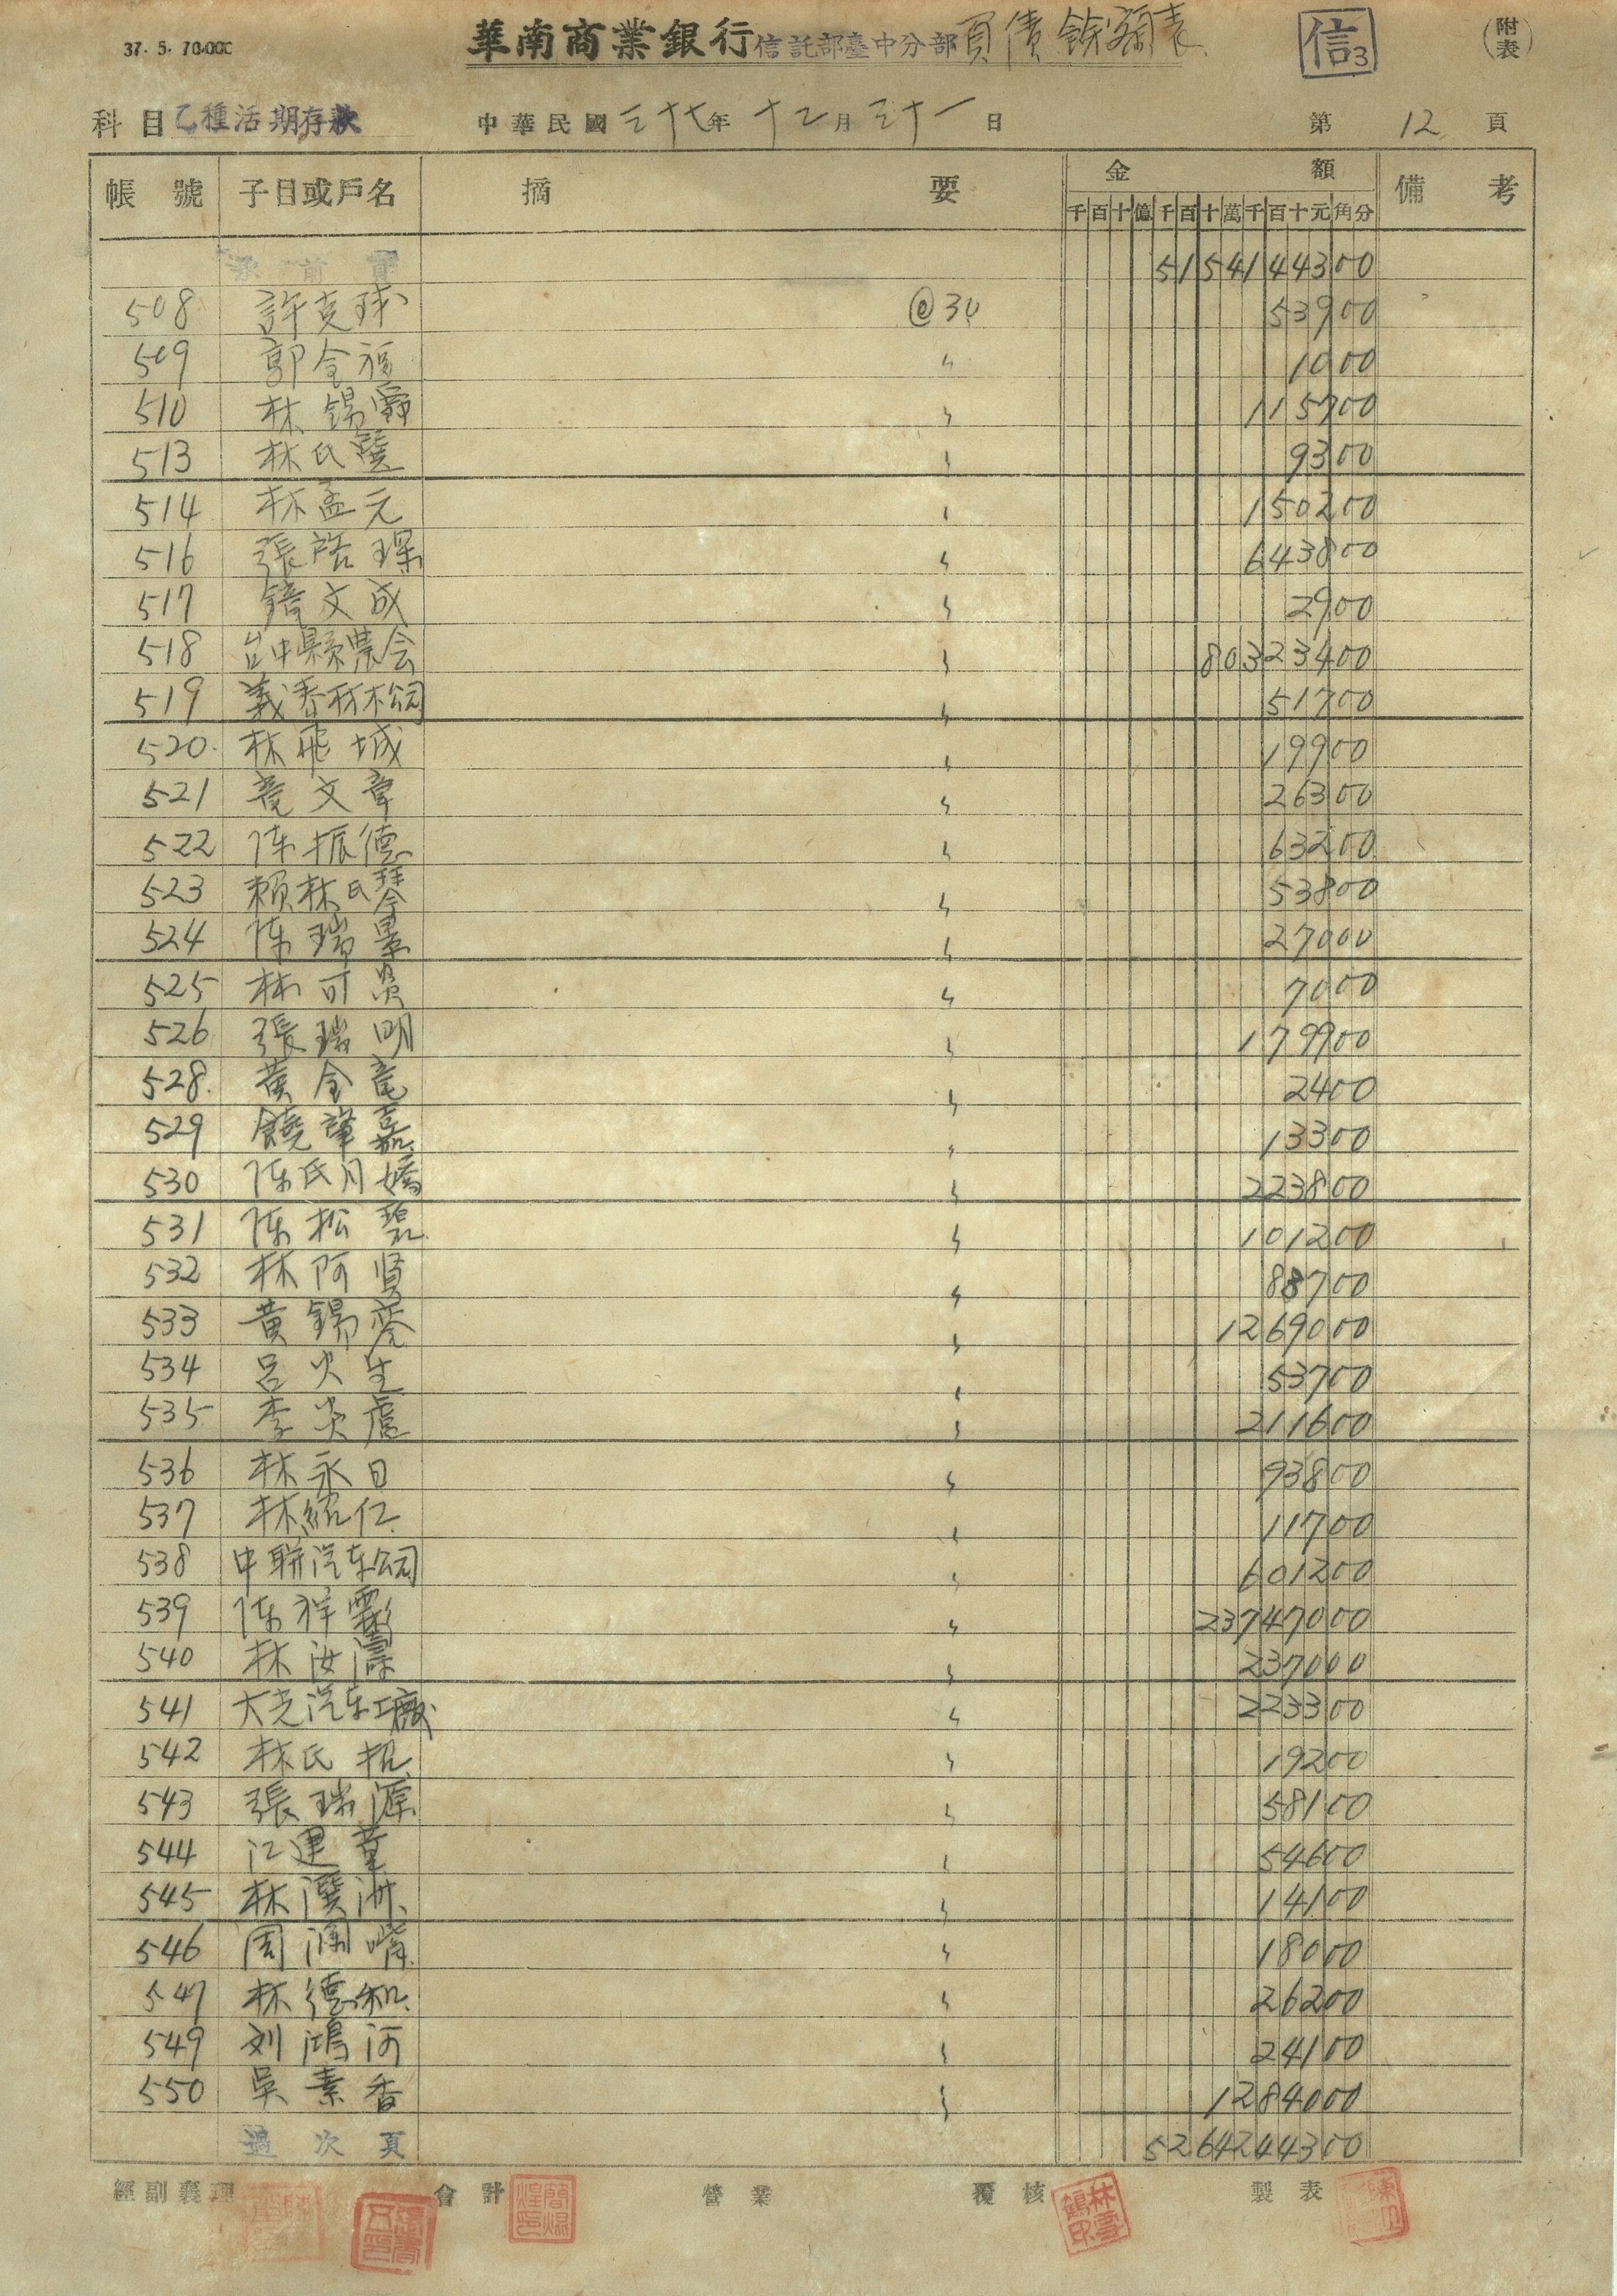 37. 5. 70.000
華南商業銀行信託部臺中分部負債餘額表
信3
(附表)
科目 乙種活期存款
中華民國三十七年十二月三十一日
第 12 頁
帳號 子目或戶名 摘要 金額 備考
千百十億千百十萬千百十元角分
承前頁 5154144300
508 許克球 @30 53900
509 郭金福 〃 1000
510 林錫爵 〃 115700
513 林氏 〃 9300
514 林孟元 〃 150200
516 張 〃 643800
517 文成 〃 2900
518 台中縣農会 〃 80323400
519 義泰材木公司 〃 51700
520 林飛城 〃 19900
521 文章 〃 26300
522 陈振德 〃 63200
523 賴林氏 〃 53800
524 陈瑞 〃 27000
525 林可 〃 7000
526 張瑞明 〃 179900
528 黃金 〃 2400
529 饒肇嘉 〃 13300
530 陈氏月嬌 〃 223800
531 陈松碧 〃 101200
532 林阿賢 〃 88700
533 黃錫 〃 1269000
534 呂火生 〃 53700
535 李炎盧 〃 211600
536 林永日 〃 93800
537 林紹仁 〃 11700
538 中聯汽车公司 〃 601200
539 陈祥霖 〃 23747000
540 林汝濤 〃 237000
541 大光汽车工廠 〃 223300
542 林氏招 〃 19200
543 張瑞源 〃 58100
544 江連 〃 54600
545 林漢洲 〃 14100
546 周 〃 18000
547 林德和 〃 26200
549 刘鴻河 〃 24100
550 吳素香 〃 1284000
過次頁 5264244300
經副襄理 會計 營業 覆核 製表